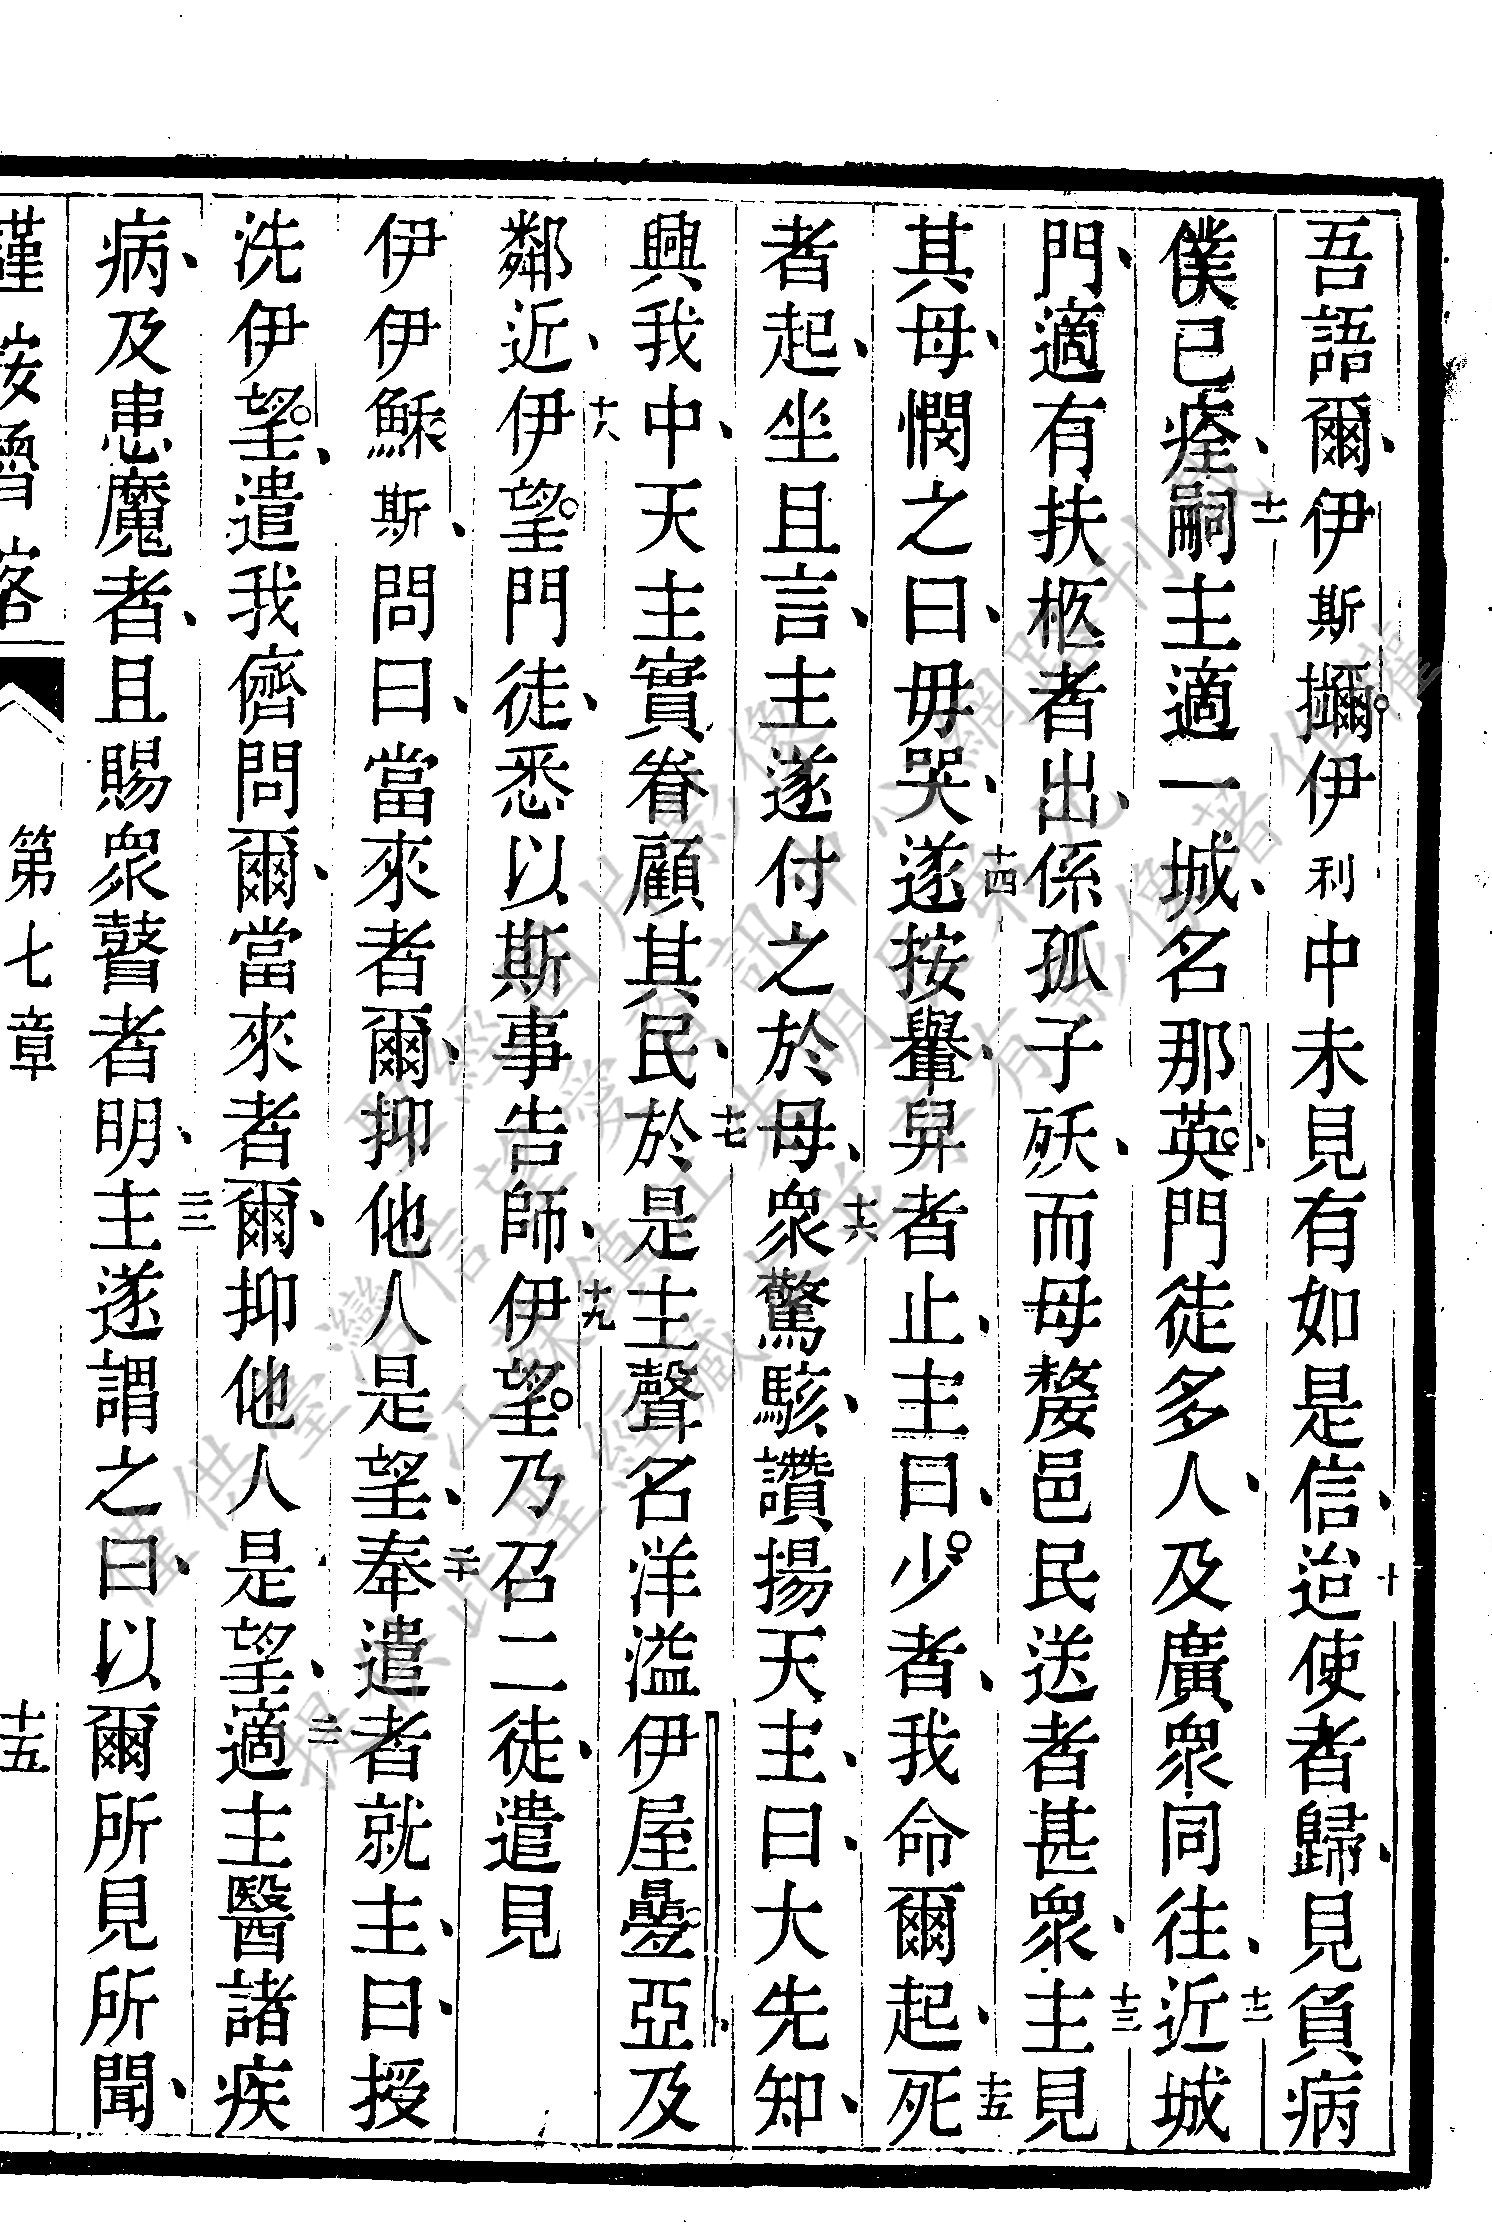 吾語爾、伊斯攟伊利中未見有如是信、十迨使者歸、見負病
僕已痊、十一嗣主適一城、名那英、門徒多人及廣衆同往、十二近城
門、適有扶柩者出、係孤子殀、而母嫠、邑民送者甚衆、十三主見
其母、憫之曰、毋哭、十四遂按轝、舁者止、主曰、少者、我命爾起、十五死
者起、坐且言、主遂付之於母、十六衆驚駭、讚揚天主、曰、大先知、
興我中、天主實眷顧其民、十七於是主聲名洋溢伊屋疊亞、及
鄰近、十八伊望門徒、悉以斯事告師、十九伊望乃召二徒、遣見
伊伊穌斯、問曰、當來者爾、抑他人是望、二十奉遣者就主、曰、授
洗伊望、遣我儕問爾、當來者爾、抑他人是望、二一適主醫諸疾
病、及患魔者、且賜衆瞽者明、二二主遂謂之曰、以爾所見所聞、
第七章
十五